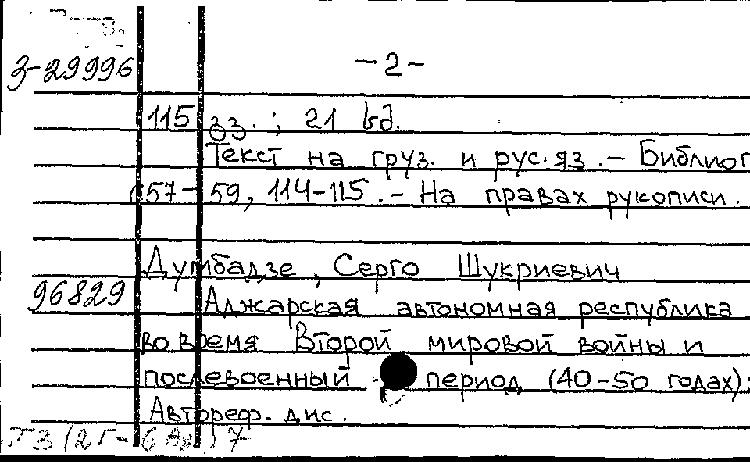 З-29996
-2-
115 გვ. ; 21 სმ.
Текст на груз. и рус. яз. - Библиог
57-59, 114-115. - На правах рукописи.
Думбадзе, Серго Шукриевич
96829
Аджарская автономная республика
во время Второй мировой войны и
послевоенный период (40-50 годах):
Автореф. дис.